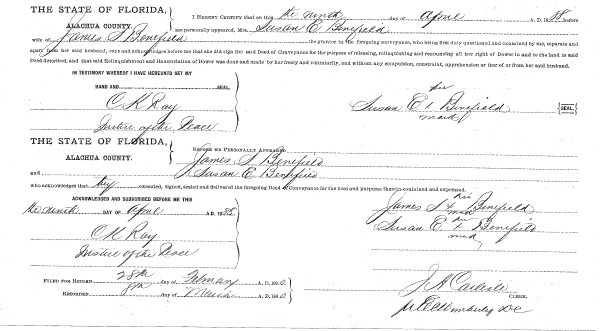 THE STATE OF FLORIDA,
ALACHUA COUNTY.
I HEREBY CERTIFY that on this the ninth day of April A. D. 18 before
me personally appeared, Mrs. Susan E Benefield
wife of James S Benefield the grantor in the foregoing conveyance, who being first duly questioned and examined by me, separate and
apart from her said husband, says and acknowledges before me that she did sign the said Deed of Conveyance for the purpose of releasing, relinquishing and renouncing all her right of Dower in and to the land in said
Deed described, and that said Relinquishment and Renunciation of Dower was done and made by her freely and voluntarily, and without any compulsion, constraint, apprehension or fear of or from her said husband.
IN TESTIMONY WHEREOF I HAVE HEREUNTO SET MY
HAND AND SEAL.
C K Ray
Justice of the Peace
her
Susan E x Benefield
mark
SEAL.
THE STATE OF FLORIDA,
ALACHUA COUNTY.
BEFORE ME PERSONALLY APPEARED
James S Benefield
and Susan E Benefield
who acknowledges that they executed, signed, sealed and delivered the foregoing Deed of Conveyance for the uses and purposes therein contained and expressed.
ACKNOWLEDGED AND SUBSCRIBED BEFORE ME THIS
the ninth DAY OF April A. D. 18
C K Ray
Justice of the Peace
his
James S x Benefield
mark
her
Susan E x Benefield
mark
FILED FOR RECORD 28th day of February A. D. 189
RECORDED 8th day of March A. D. 189
J A Carlisle
CLERK.
DC